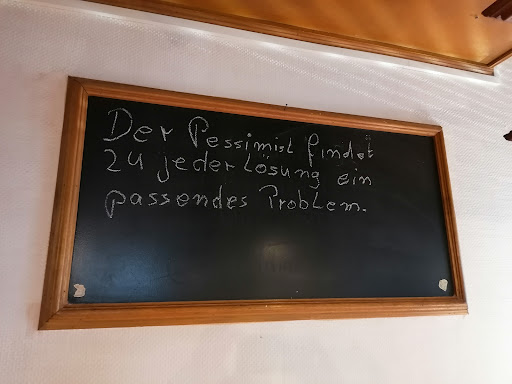 Der Pessimist findet
zu jeder Lösung ein
passendes Problem.